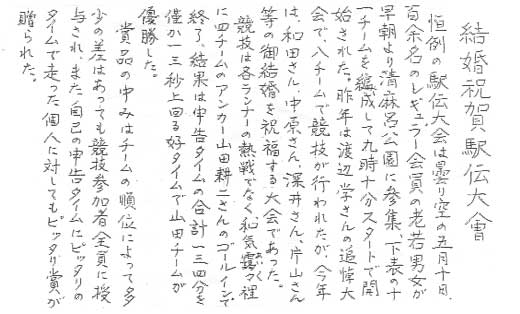 結婚祝賀駅伝大會
恒例の駅伝大会は曇り空の五月十日、
百余名のレギュラー会員の老若男女が
早朝より清麻呂公園に参集、下表の十
一チームを編成して九時十分スタートで開
始された。昨年は渡辺学さんの追悼大
会で、八チームで競技が行われたが、今年
は、和田さん、中原さん、深井さん、片山さん
等の御結婚を祝福する大会であった。
競技は各ランナーの熱戦でなく、和気靄々裡
に四チームのアンカー山田耕二さんのゴールインで
終了、結果は申告タイムの合計一三四分を
僅か一三秒上回る好タイムで山田チームが
優勝した。
賞品の中みはチームの順位によって多
少の差はあっても競技参加者全員に授
与され、また自己の申告タイムにピッタリの
タイムで走った個人に対してもピッタリ賞が
贈られた。